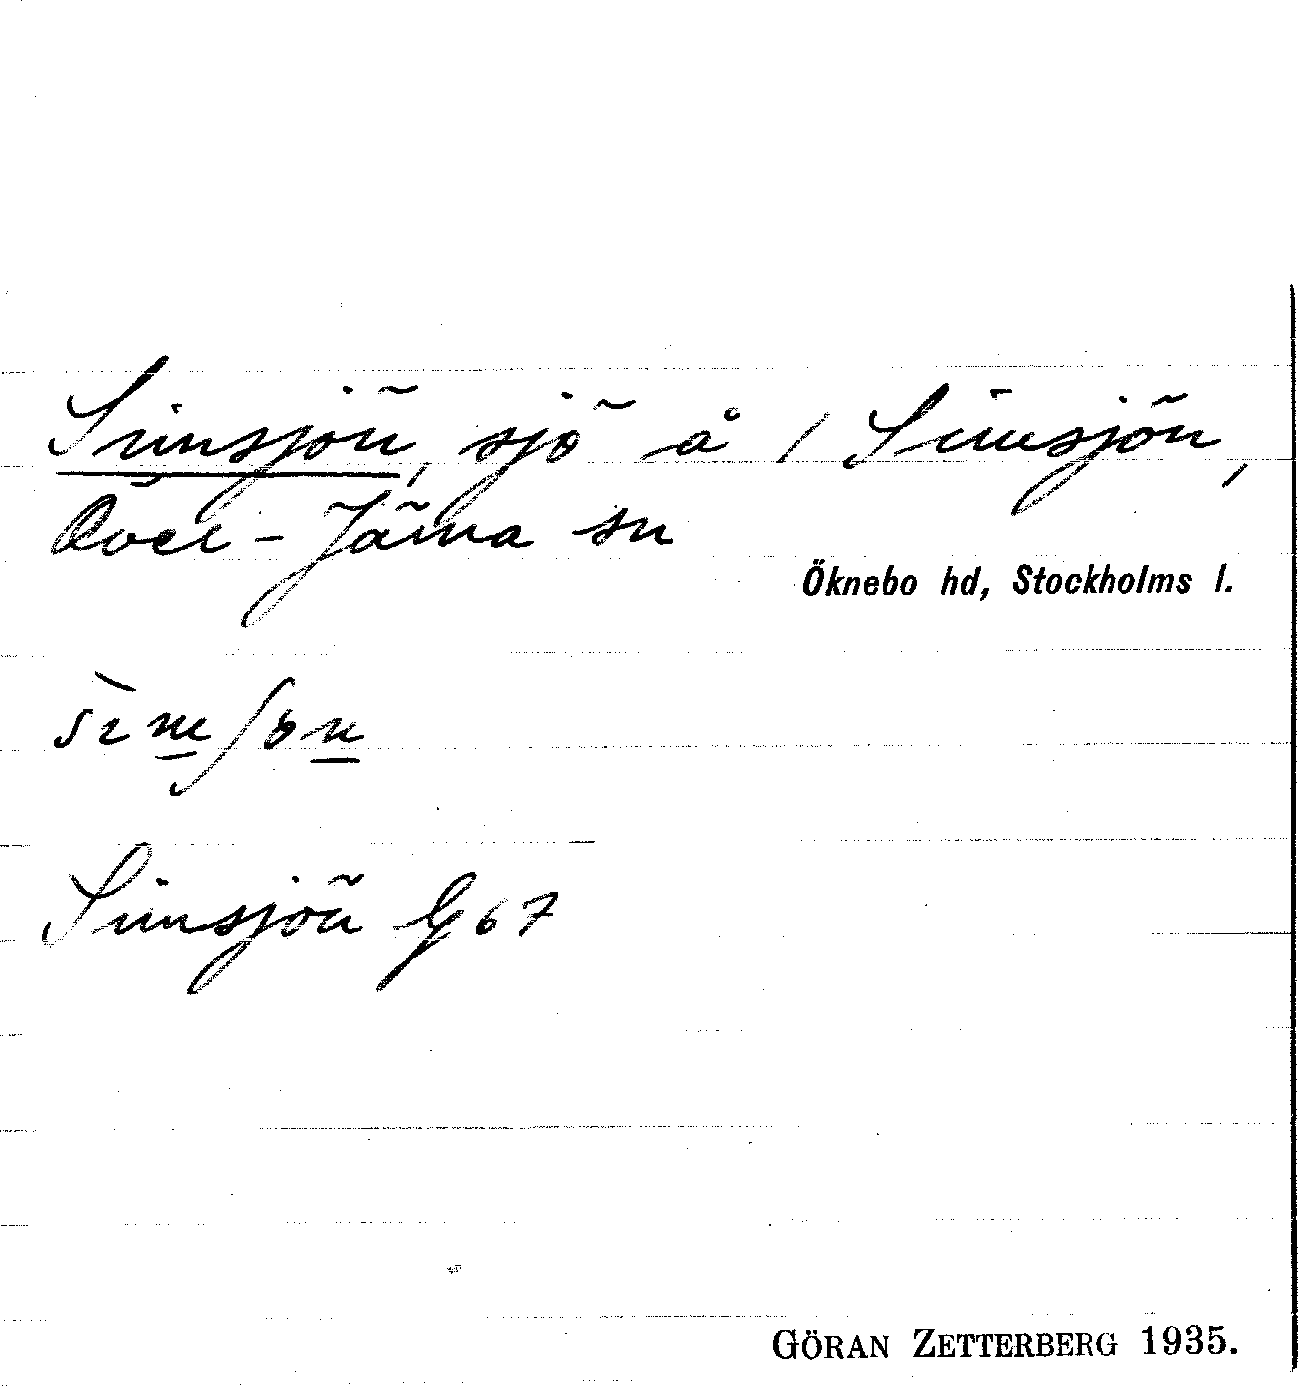 Simsjön, sjö å 1 Simsjön,
Över-Järna sn
Öknebo hd, Stockholms l.
Simsjön G 67
GÖRAN ZETTERBERG 1935.